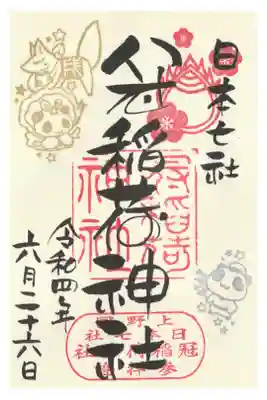 日本七社
冠稲荷神社
令和四年
六月二十六日
上野國
日本七社
冠稲荷神社